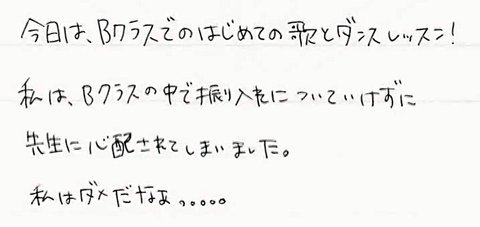 今日は、Bクラスでのはじめての歌とダンスレッスン!
私は、Bクラスの中で振り入れについていけずに
先生に心配されてしまいました。
私はダメだなぁ.....